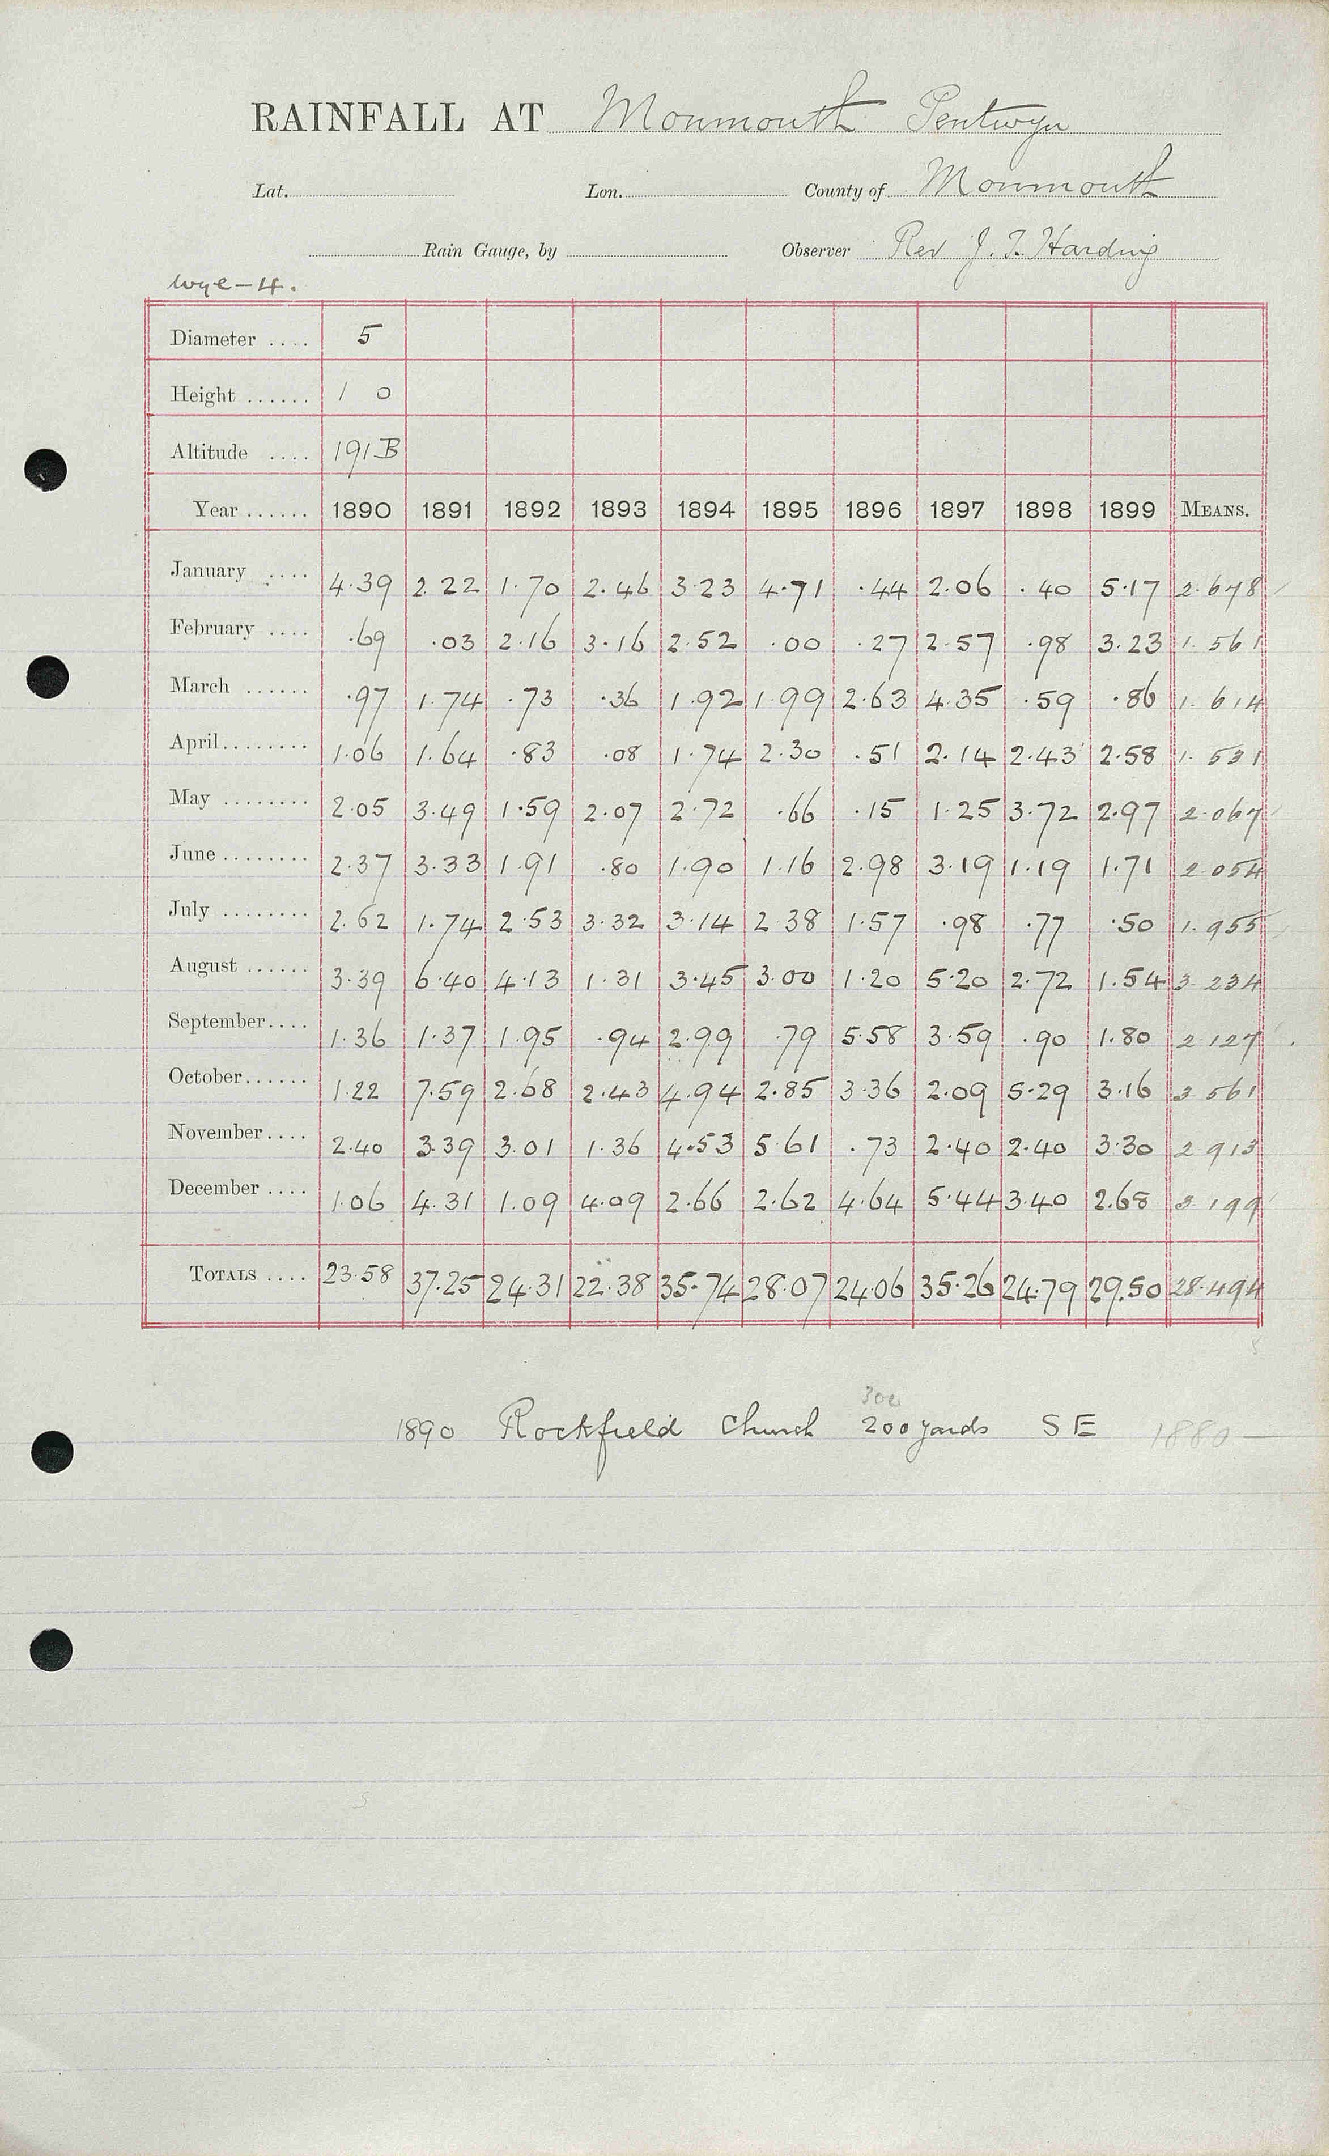 RAINFALL AT Monmouth Pentwyn
Lat. Lon. County of Monmouth
Rain Gauge, by Observer Rev J. T. Harding
Wye-4.
Diameter .... 5
Height ...... 1 0
Altitude .... 191 B
Year ...... 1890 1891 1892 1893 1894 1895 1896 1897 1898 1899 MEANS.
January .... 4.39 2.22 1.70 2.46 3.23 4.71 .44 2.06 .40 5.17 2.678
February .... .69 .03 2.16 3.16 2.52 .00 .27 2.57 .98 3.23 1.561
March ...... .97 1.74 .73 .36 1.92 1.99 2.63 4.35 .59 .86 1.614
April........ 1.06 1.64 .83 .08 1.74 2.30 .51 2.14 2.43 2.58 1.531
May ........ 2.05 3.49 1.59 2.07 2.72 .66 .15 1.25 3.72 2.97 2.067
June........ 2.37 3.33 1.91 .80 1.90 1.16 2.98 3.19 1.19 1.71 2.054
July ........ 2.62 1.74 2.53 3.32 3.14 2.38 1.57 .98 .77 .50 1.955
August ...... 3.39 6.40 4.13 1.31 3.45 3.00 1.20 5.20 2.72 1.54 3.234
September.... 1.36 1.37 1.95 .94 2.99 .79 5.58 3.59 .90 1.80 2.127
October...... 1.22 7.59 2.68 2.43 4.94 2.85 3.36 2.09 5.29 3.16 3.561
November.... 2.40 3.39 3.01 1.36 4.53 5.61 .73 2.40 2.40 3.30 2.913
December .... 1.06 4.31 1.09 4.09 2.66 2.62 4.64 5.44 3.40 2.68 3.199
TOTALS .... 23.58 37.25 24.31 22.38 35.74 28.07 24.06 35.26 24.79 29.50 28.494
8
300
1890 Rockfield Church 200 yards SE 1880 —